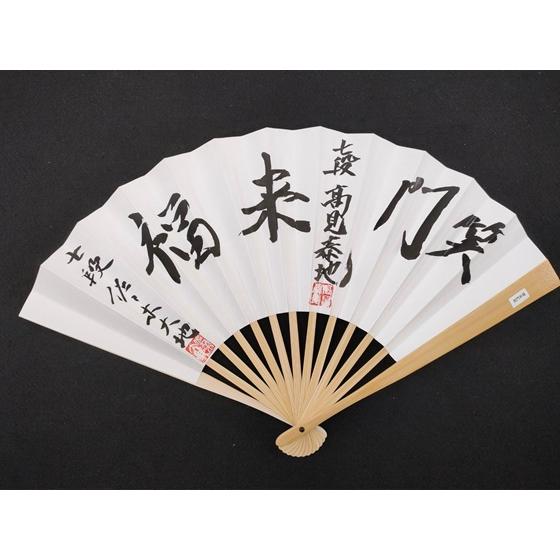 笑門来福
七段 髙見泰地
七段 佐々木大地